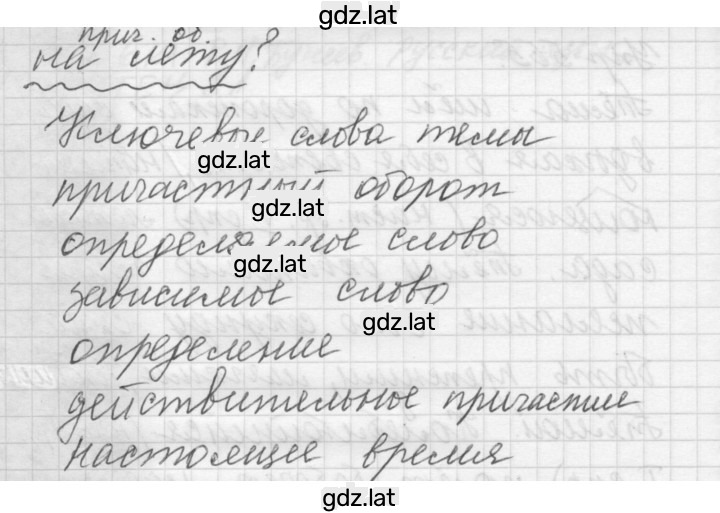 gdz.lat
прич. об.
на лету?
Ключевые слова темы
gdz.lat
причастный оборот
gdz.lat
определяемое слово
gdz.lat
зависимое слово
gdz.lat
определение
действительное причастие
настоящее время
gdz.lat